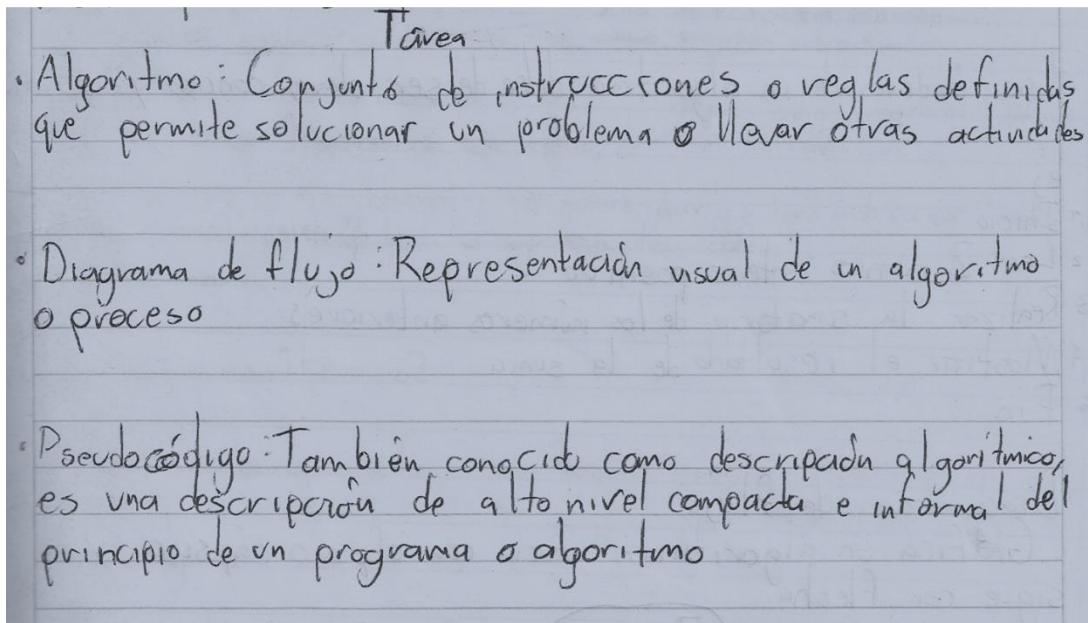 Tarea
· Algoritmo: Conjunto de instrucciones o reglas definidas
que permite solucionar un problema o llevar otras actividades
· Diagrama de flujo: Representación visual de un algoritmo
o proceso
· Pseudocódigo: También conocido como descripción algorítmico,
es una descripción de alto nivel compacta e informal del
principio de un programa o algoritmo